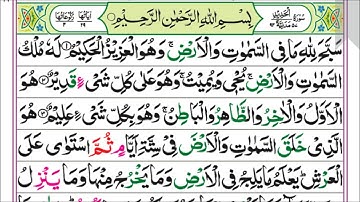 سُوْرَةُ الْحَدِيْدِ بِسْمِ اللّٰهِ الرَّحْمٰنِ الرَّحِيْمِ
سَبَّحَ لِلّٰهِ مَا فِى السَّمٰوٰتِ وَالْاَرْضِ ۚ وَهُوَ الْعَزِيْزُ الْحَكِيْمُ ۝۱ لَهٗ مُلْكُ
السَّمٰوٰتِ وَالْاَرْضِ ۚ يُحْيٖ وَيُمِيْتُ ۚ وَهُوَ عَلٰى كُلِّ شَىْءٍ قَدِيْرٌ ۝۲ هُوَ
الْاَوَّلُ وَالْاٰخِرُ وَالظَّاهِرُ وَالْبَاطِنُ ۚ وَهُوَ بِكُلِّ شَىْءٍ عَلِيْمٌ ۝۳ هُوَ
الَّذِىْ خَلَقَ السَّمٰوٰتِ وَالْاَرْضَ فِىْ سِتَّةِ اَيَّامٍ ثُمَّ اسْتَوٰى عَلَى
الْعَرْشِ ؕ يَعْلَمُ مَا يَلِجُ فِى الْاَرْضِ وَمَا يَخْرُجُ مِنْهَا وَمَا يَنْزِلُ